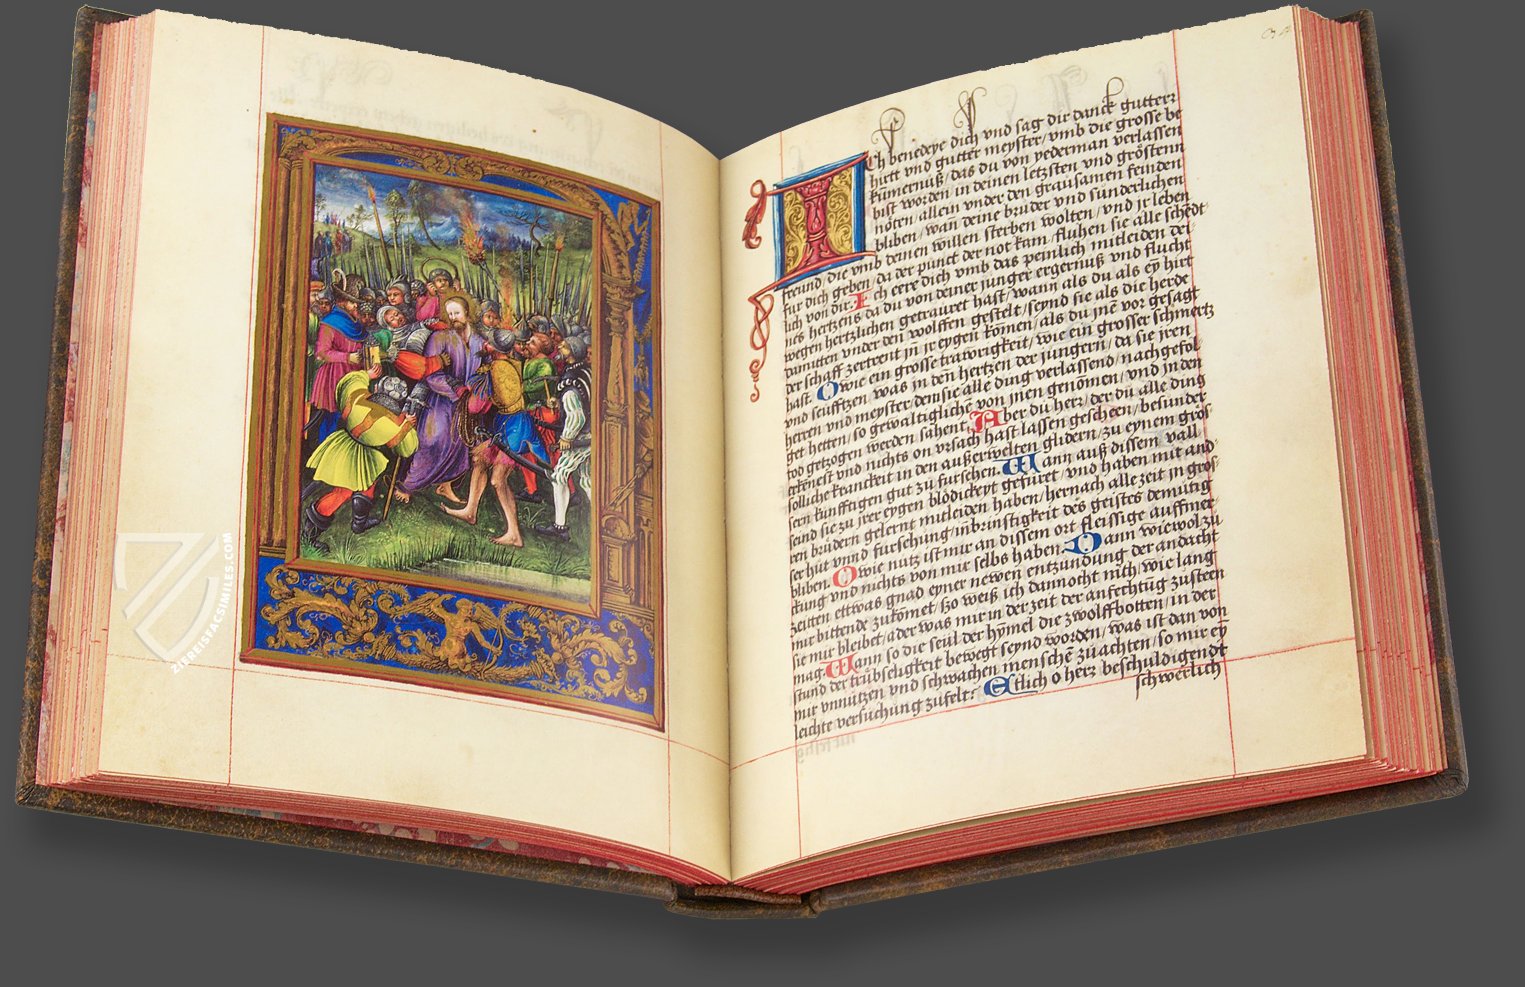 Ich benedeye dich vnd sag dir danck gutterr
hirtt vnd gutter meyster/vmb die grosse be
kümernuß/das du von yederman verlassen
bist worden/in deinen letzsten vnd grösten
nöten/allein vnder den grausamen feinden
bliben/wan deine bruder vnd sunderlichen
freund/die vmb deinen willen sterben wolten/vnd jr leben
fur dich geben/da der punct der not kam/fluhen sie alle schedt
lich von dir. Ich eere dich vmb das peinlich mitleiden dei
nes hertzens/da du von deiner junger ergernuß vnd flucht
wegen hertzlichen getrauret hast/wann als du als eÿ hirt
damitten vnder den wolffen gestelt/seynd sie als die herde
der schaff zertrent in jr eygen kömen/als du jnē vor gesagt
hast. O wie ein grosse trawrigkeit/wie ein grosser schmertz
vnd seufftzen/was in den hertzen der jungern/da sie jren
herren vnd meyster/dem sie alle ding verlassend/nach gefol
get hetten/so gewaltigliche von jnen genömen/vnd in den
tod getzogen werden sahent. Aber du herz/der du alle ding
erkenest vnd nichts on vrsach hast lassen gescheen/besunder
solliche kranckeit in den außerwelten glidern/zu eynem gros
sern kunfftigen gut zu fursehen. Wann auß dissem vall
seind sie zu jrer eygen blödickeyt gefüret/vnd haben mit and
ern brüdern gelernt mitleiden haben/hernach alle zeit in gros
ser hut vnnd fursehung/inbrinstigkeit des geistes demütig
bliben. O wie nutz ist mir an dissem ort fleissige auffmer
ckung vnd nichts von mir selbs haben. Dann wiewol zu
zeitten ettwas gnad eyner newen entzundung der andacht
mir bittende zukömet/so weiß ich dannocht nich wie lang
sie mir bleibet/ader was mir in der zeit der anfechtug zusteen
mag. Wann so die seul der hymel die zwolffbotten/in der
stund der trübseligkeit bewegt seynd worden/was ist dan von
mir vnnützen vnd schwachen menschē zu achten/so mir eÿ
leichte versuchung zufelt? Etlich o herz beschuldigendt
schwerlich
ZIEREISFACSIMILES.COM